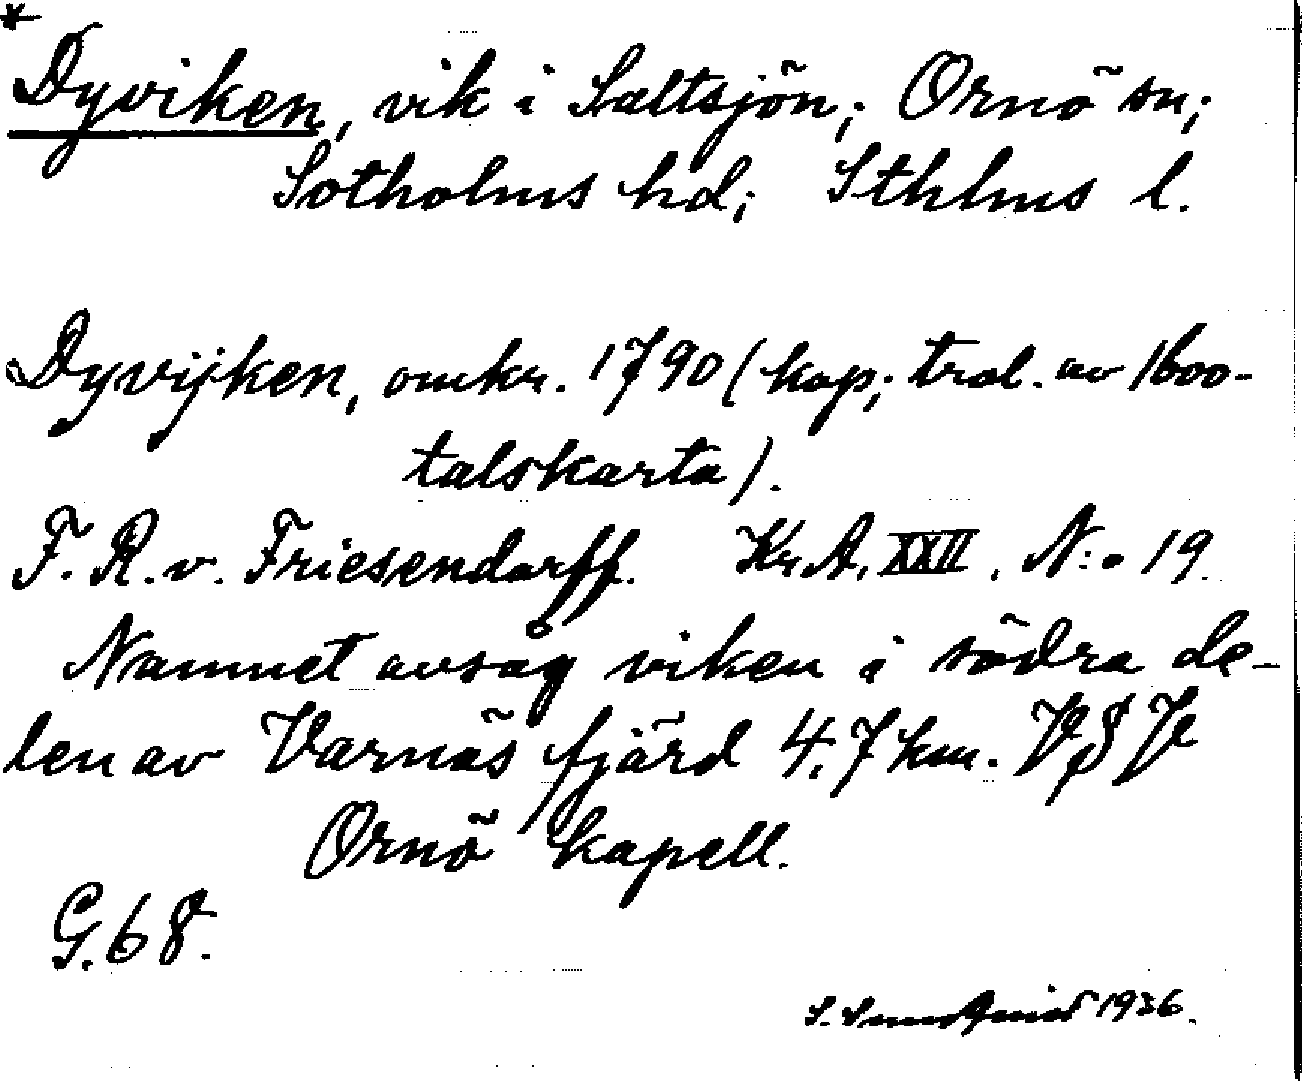 *
Dyviken, vik i Saltsjön; Ornö sn;
Sotholms hd; Sthlms l.
Dyvijken, omkr. 1790 (kop; trol. av 1600-
talskarta).
F. R. v. Friesendorff. Kr. A. XXII. N:o 19.
Namnet avsåg viken i södra de-
len av Varnäs fjärd 4.7 km. VSV
Ornö kapell.
G. 68.
S. 1936.